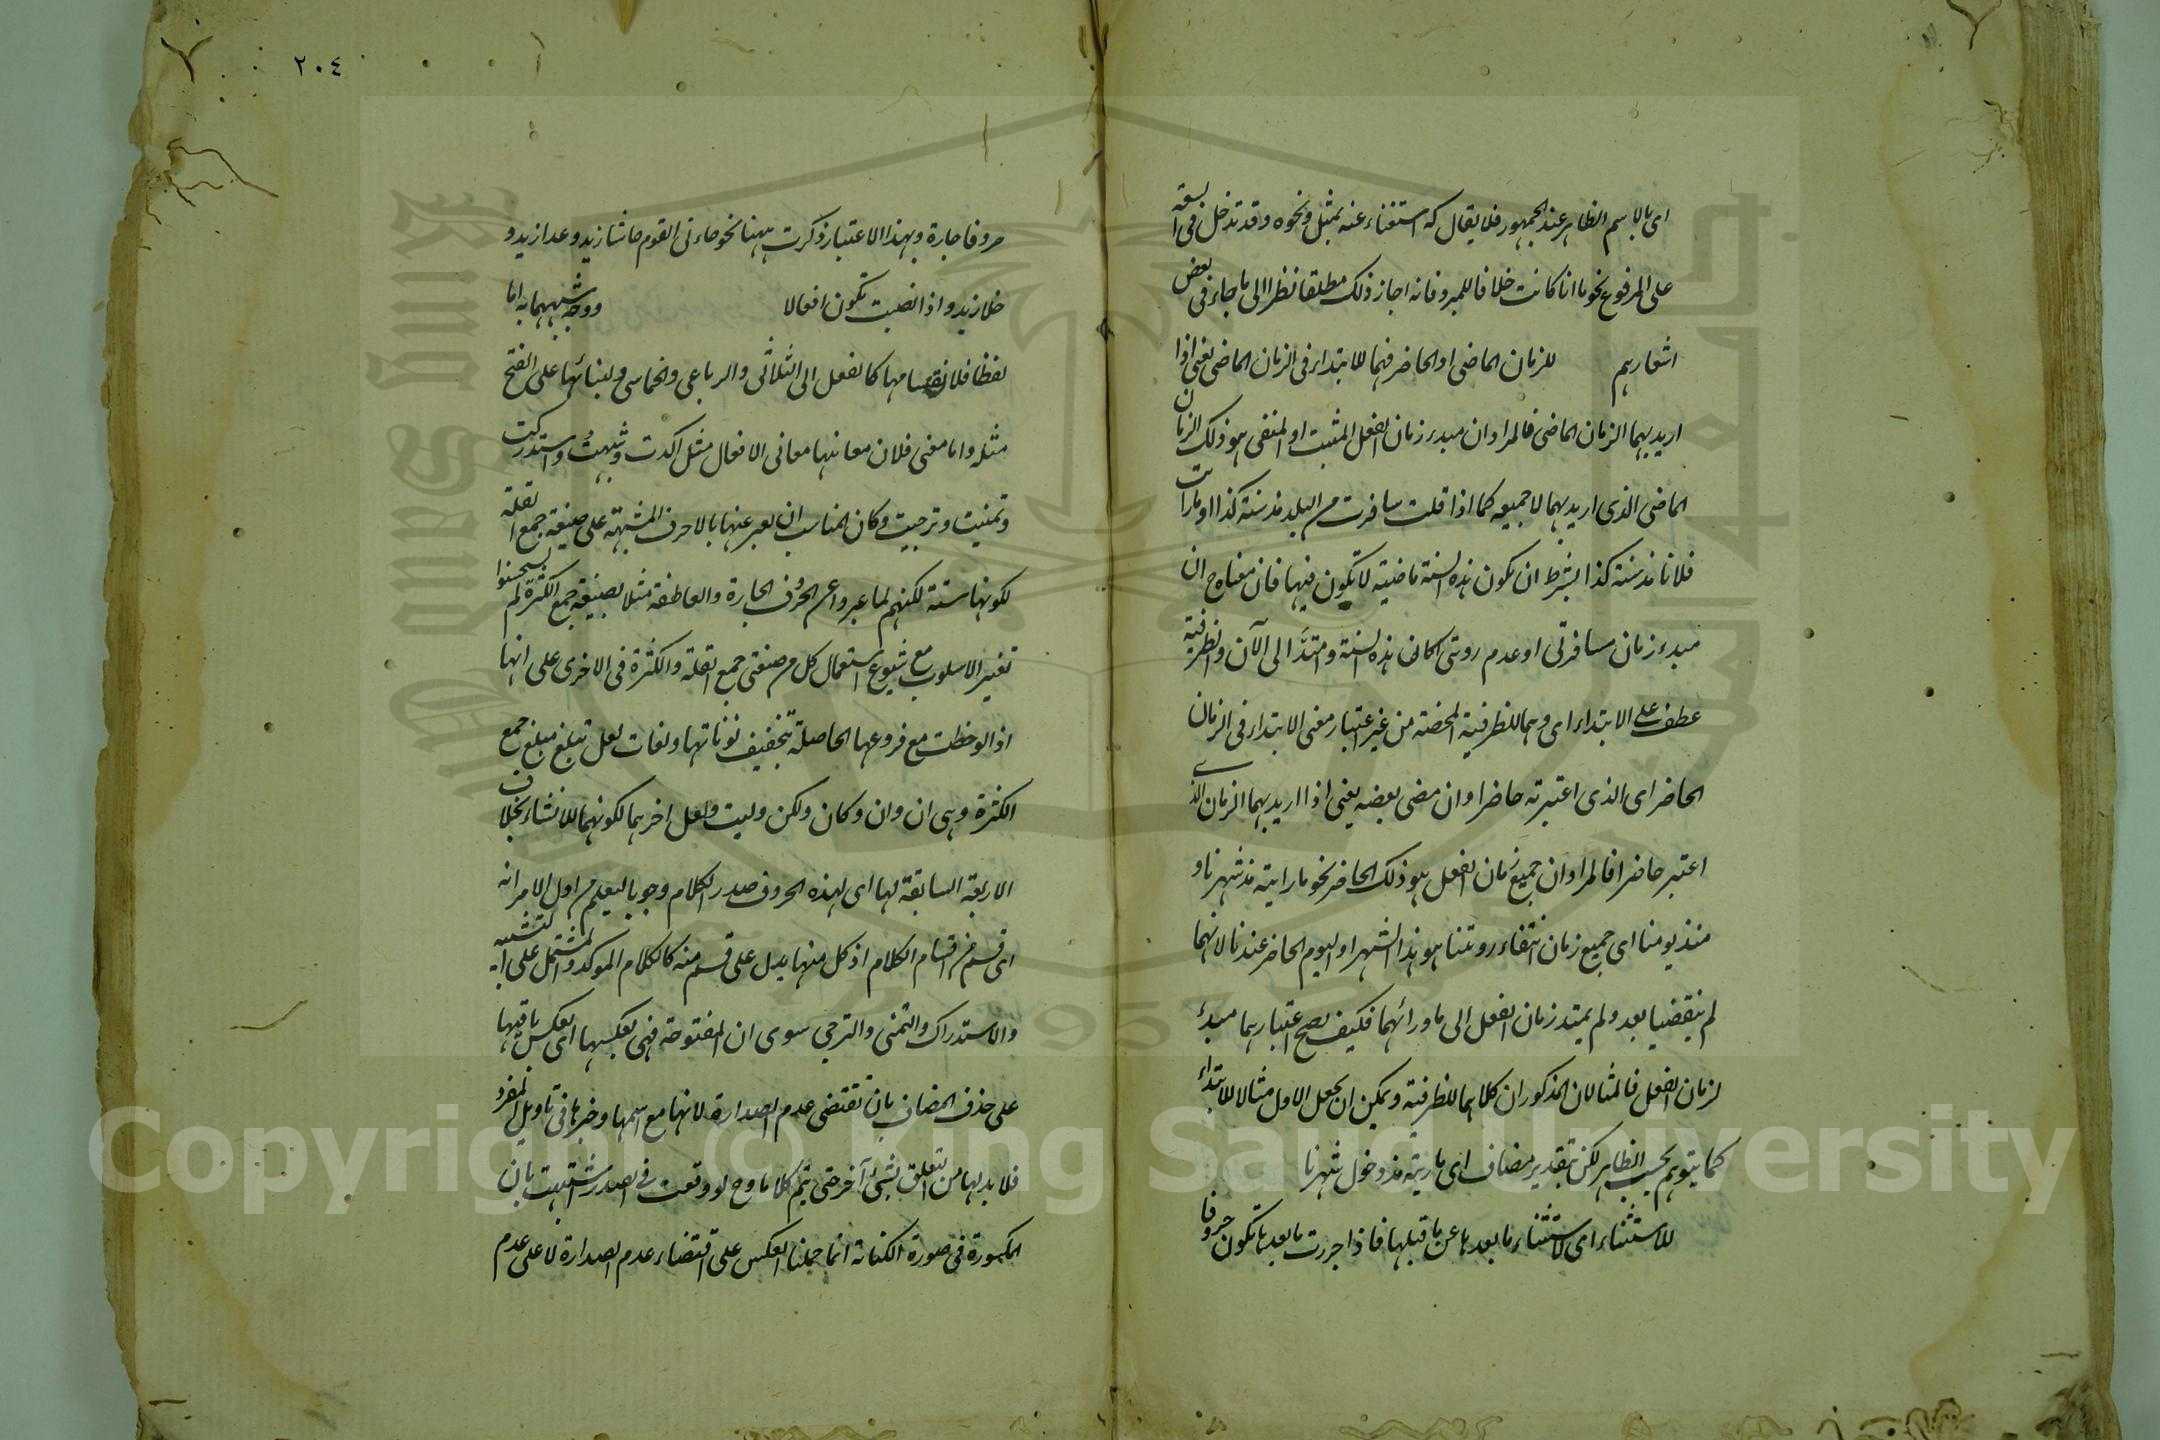 اى بالاسم الظاهر عند الجمهور فلا يقال كه استغناء عنه بمثل ونحوه وقد تدخل فى السعة
على المرفوع نحو ما انا كانت خلافا للمبرد فانه اجاز ذلك مطلقا نظرا الى ما جاء فى بعض
اشعارهم للزمان الماضى او الحاضر فهما للابتداء فى الزمان الماضى يعنى اذا
اريد بهما الزمان الماضى فالمراد ان مبدء زمان الفعل المثبت او المنفى هو ذلك الزمان
الماضى الذى اريد بهما لا جميعه كما اذا قلت سافرت من البلد مذ سنة كذا او ما رايت
فلانا مذ سنة كذا بشرط ان يكون هذه السنة ماضية لا تكون فيها فان معناه ح ان
مبدء زمان مسافرتى او عدم رويتى كان هذه السنة وامتد الى الآن والظرفية
عطف على الابتداء اى وهما للظرفية المحضة من غير اعتبار معنى الابتداء فى الزمان
الحاضر اى الذى اعتبرته حاضرا وان مضى بعضه يعنى اذا اريد بهما الزمان الذى
اعتبر حاضرا فالمراد ان جميع زمان الفعل هو ذلك الحاضر نحو ما رايته مذ شهرنا و
منذ يومنا اى جميع زمان انتفاء رويتنا هو هذا الشهر او اليوم الحاضر عندنا لانهما
لم ينقضيا بعد ولم يمتد زمان الفعل الى ما ورائهما فكيف يصح اعتبارهما مبدئ
لزمان الفعل فالمثالان المذكوران كلاهما للظرفية ويمكن ان يجعل الاول مثالا للابتداء
كما يتوهم بحسب الظاهر لكن بتقدير مضاف اى ما رايته مذ دخول شهرنا
للاستثناء اى لاستثناء ما بعدها عن ما قبلها فاذا جررت ما بعدها تكون حروفا
٢٠٤
حروفا جارة وبهذا الاعتبار ذكرت ههنا نحو جاءنى القوم حاشا زيد وعدا زيد و
خلا زيد واذا نصبت تكون افعالا ووجه شبههما به اما
لفظا فلانقسامها كالفعل الى الثلاثى والرباعى والخماسى ولبنائها على الفتح
مثله واما معنى فلان معانيها معانى الافعال مثل اكدت وشبهت واستدركت
وتمنيت وترجيت وكان المناسب ان يعبر عنها بالاحرف المشبهة على صيغة جمع القلة
لكونها ستة لكنهم لما عبروا عن الحروف الجارة والعاطفة مثلا بصيغة جمع الكثرة لم يستحسنوا
تغيير الاسلوب مع شيوع استعمال كل من صيغتى جمع القلة والكثرة فى الاخرى على انها
اذا لوحظت مع فروعها الحاصلة بتخفيف نوناتها ولغات لعل تبلغ مبلغ جمع
الكثرة وهى ان وان وكان ولكن وليت ولعل اخرهما لكونهما للانشاء بخلاف
الاربعة السابقة لها اى لهذه الحروف صدر الكلام وجوبا ليعلم من اول الامر انه
اى قسم من اقسام الكلام اذ كل منها يدل على قسم منه كالكلام الموكد والمشتمل على التشبيه
والاستدراك والتمنى والترجى سوى ان المفتوحة فهى بعكسها اى بعكس باقيها
على حذف المضاف بان تقتضى عدم الصدارة لانها مع اسمها وخبرها فى تاويل المفرد
فلا بد لها من التعلق بشئ آخر حتى يتم كلاما وح لو وقعت فى الصدر اشتبهت بان
المكسورة فى صورة الكتابة انما حملنا العكس على اقتضاء عدم الصدارة لا على عدم
Copyright © King Saud University